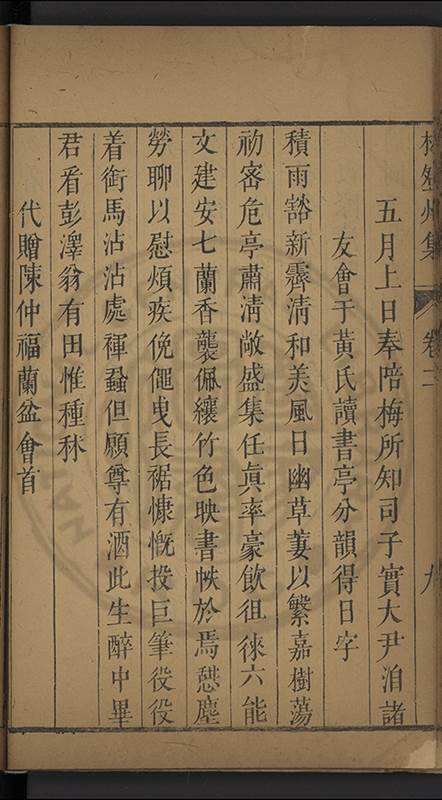 五月上日奉陪梅所知司子實大尹洎諸
友會于黃氏讀書亭分韻得日字
積雨豁新霽清和美風日幽草萋以繁嘉樹蕩
初密危亭肅清敞盛集任眞率豪飲徂徠六能
文建安七蘭香襲佩纕竹色映書帙於焉憇塵
勞聊以慰煩疾俛僶曳長裾慷慨投巨筆役役
着銜馬沾沾處褌蝨但願尊有酒此生醉中畢
君看彭澤翁有田惟種秫
代贈陳仲福蘭盆會首